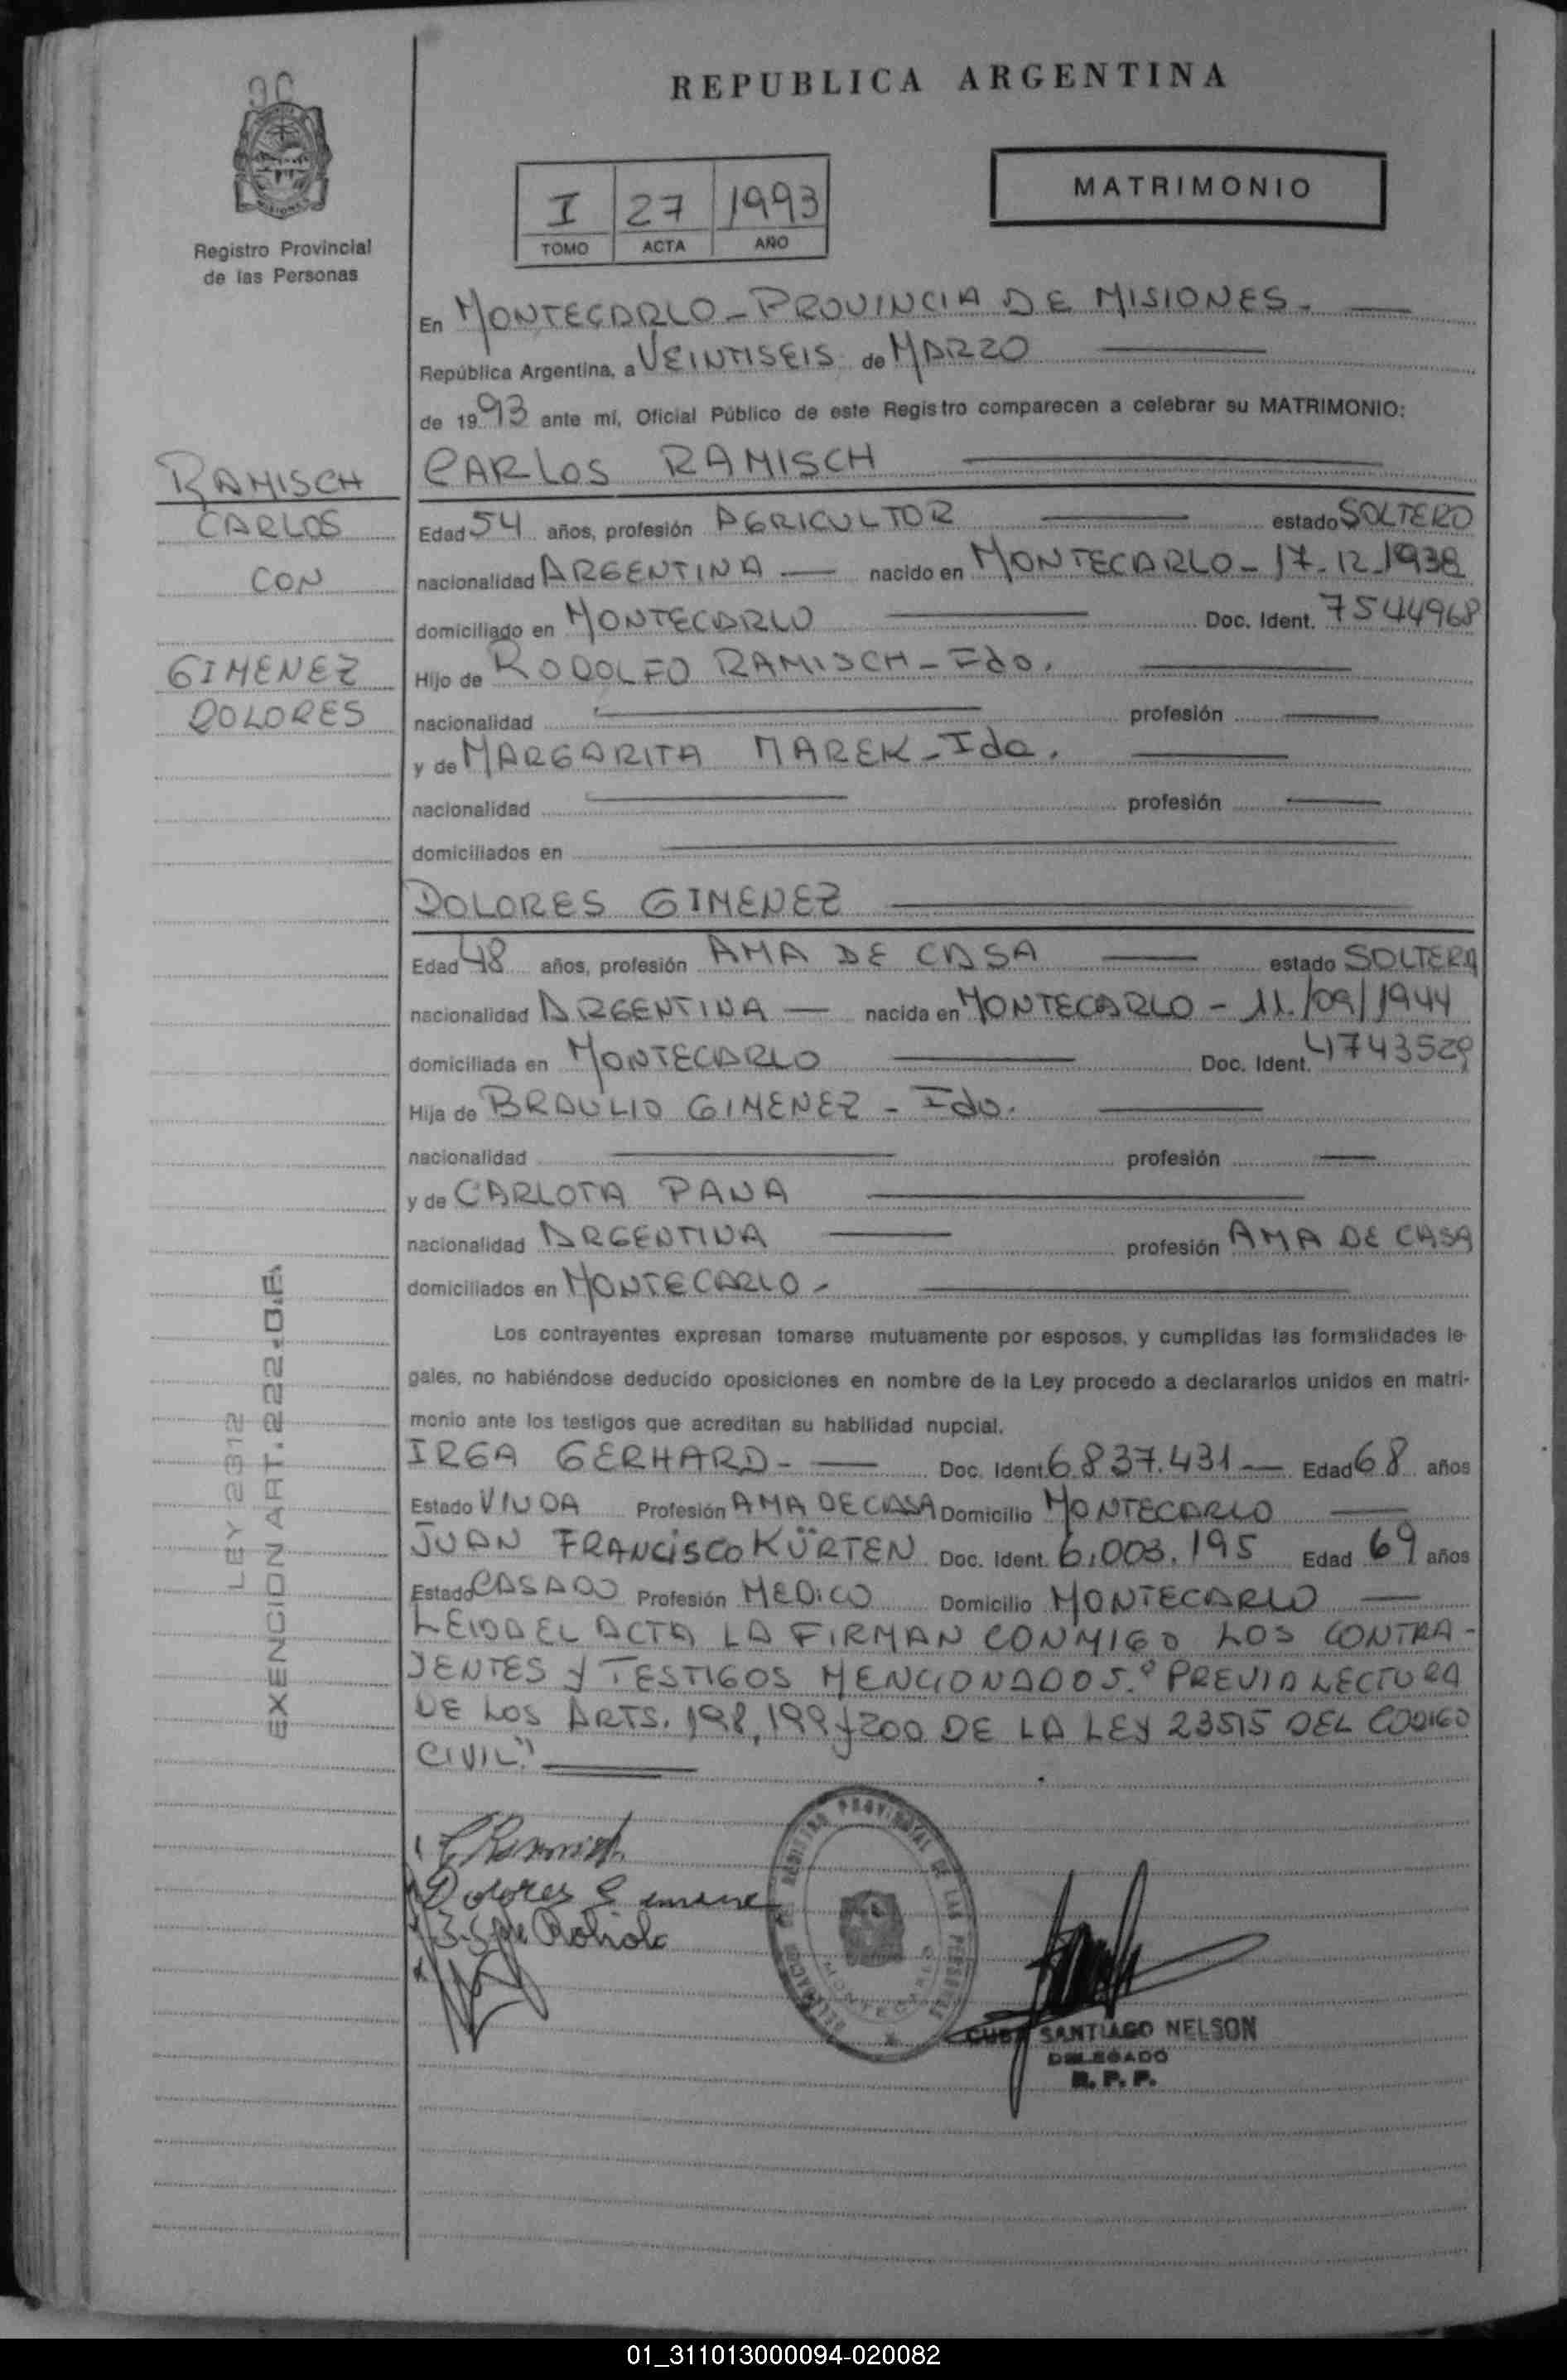 REPUBLICA ARGENTINA
I 27 1993
TOMO ACTA AÑO
MATRIMONIO
Registro Provincial
de las Personas
En MONTECARLO - PROVINCIA DE MISIONES.
República Argentina, a VEINTISEIS de MARZO
de 1993 ante mí, Oficial Público de este Registro comparecen a celebrar su MATRIMONIO:
CARLOS RAMISCH
Edad 54 años, profesión AGRICULTOR estado SOLTERO
nacionalidad ARGENTINA nacido en MONTECARLO - 17-12-1938
domiciliado en MONTECARLO Doc. Ident. 7544968
Hijo de RODOLFO RAMISCH - Fdo.
nacionalidad profesión
y de MARGARITA MAREK - Ida.
nacionalidad profesión
domiciliados en
RAMISCH
CARLOS
CON
GIMENEZ
DOLORES
DOLORES GIMENEZ
Edad 48 años, profesión AMA DE CASA estado SOLTERA
nacionalidad ARGENTINA nacida en MONTECARLO - 11/09/1944
domiciliada en MONTECARLO Doc. Ident. 4743529
Hija de BRAULIO GIMENEZ - Ido.
nacionalidad profesión
y de CARLOTA PANA
nacionalidad ARGENTINA profesión AMA DE CASA
domiciliados en MONTECARLO -
Los contrayentes expresan tomarse mutuamente por esposos, y cumplidas las formalidades le-
gales, no habiéndose deducido oposiciones en nombre de la Ley procedo a declararlos unidos en matri-
monio ante los testigos que acreditan su habilidad nupcial.
IRGA GERHARD - Doc. Ident. 6.837.431 Edad 68 años
Estado VIUDA Profesión AMA DE CASA Domicilio MONTECARLO
JUAN FRANCISCO KÜRTEN Doc. Ident. 6.003.195 Edad 69 años
Estado CASADO Profesión MEDICO Domicilio MONTECARLO
LEIDA EL ACTA LA FIRMAN CONMIGO LOS CONTRA-
YENTES Y TESTIGOS MENCIONADOS." PREVIA LECTURA
DE LOS ARTS. 198, 199 y 200 DE LA LEY 23515 DEL CODIGO
CIVIL"
LEY 2312
EXENCION ART. 222.O.F.
Dolores
MONTECARLO
SANTIAGO NELSON
DELEGADO
R. P. P.
01_311013000094-020082